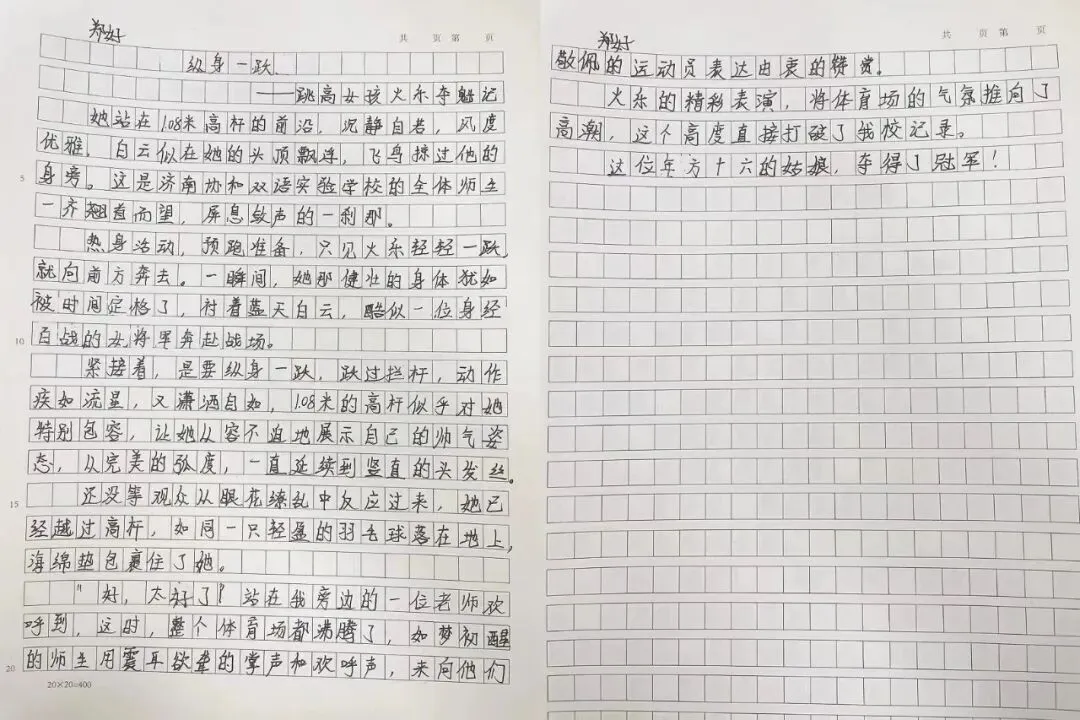 郑好
共 页 第 页
纵身一跃
——跳高女孩火乐夺魁记
她站在1.08米高杆的前沿，沉静自若，风度
优雅。白云似在她的头顶飘浮，飞鸟掠过他的
5 身旁。这是济南协和双语实验学校的全体师生
一齐翘首而望，屏息敛声的一刹那。
热身活动，预跑准备，只见火乐轻轻一跃，
就向前方奔去。一瞬间，她那健壮的身体犹如
被时间定格了，衬着蓝天白云，酷似一位身经
10 百战的女将军奔赴战场。
紧接着，是要纵身一跃，跃过拦杆，动作
疾如流星，又潇洒自如，1.08米的高杆似乎对她
特别包容，让她从容不迫地展示自己的帅气姿
态，从完美的弧度，一直延续到竖直的头发丝。
15 还没等观众从眼花缭乱中反应过来，她已
经越过高杆，如同一只轻盈的羽毛球落在地上，
海绵垫包裹住了她。
“好，太好了”站在我旁边的一位老师欢
呼到，这时，整个体育场都沸腾了，如梦初醒
20 的师生用震耳欲聋的掌声和欢呼声，来向他们
20×20=400
郑好
共 页 第 页
敬佩的运动员表达由衷的赞赏。
火乐的精彩表演，将体育场的气氛推向了
高潮，这个高度直接打破了我校记录。
这位年方十六的姑娘，夺得了冠军！